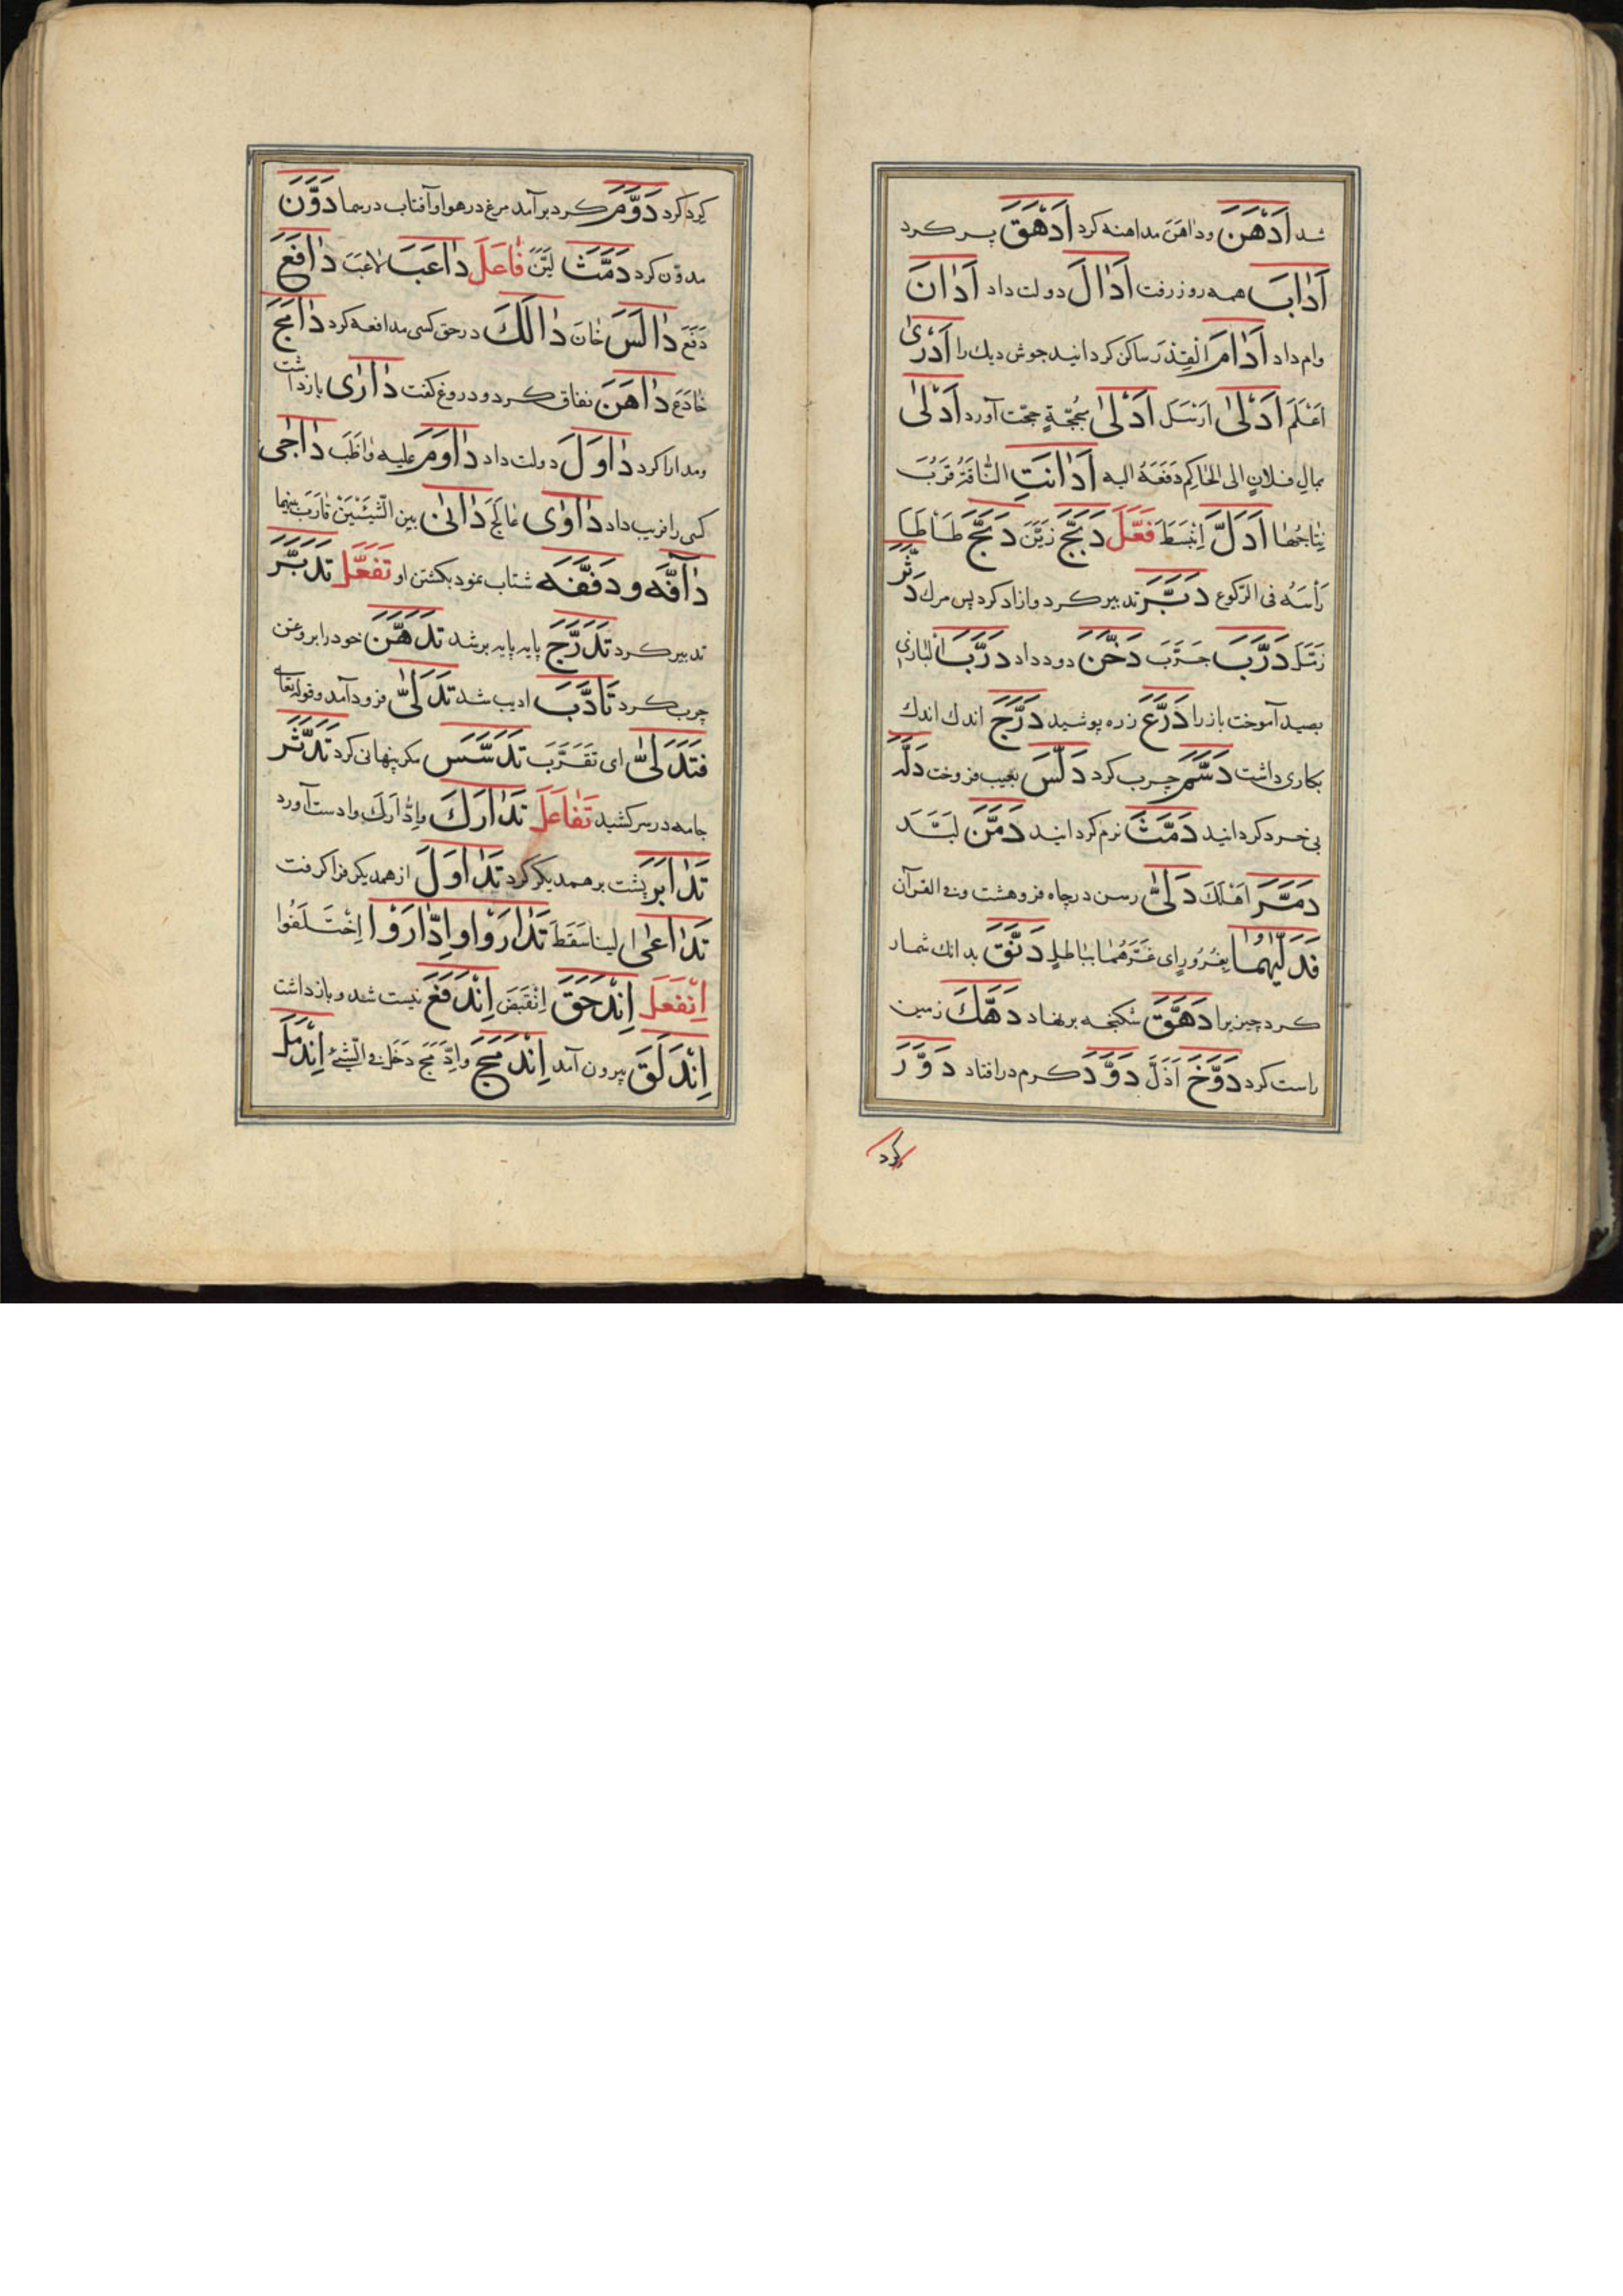 شد اَدْهَنَ ودٰاهَنَ مداهنه کرد اَدْهَقَ پر کرد
اَدٰابَ همه روز رفت اَدٰالَ دولت داد اَدٰانَ
وام داد اَدٰامَ الْقِدْرَ ساکن کردانید جوش دیک را اَدْرٰی
اَعْلَمَ اَدْلیٰ اَرْسَلَ اَدْلیٰ بِحُجَّةٍ حجّت آورد اَدْلیٰ
بمالِ فلانٍ الی الحٰاکِم دَفَعَهُ الیه اَدٰانَتِ النّٰاقَةُ قَرُبَ
نِتٰاجُهٰا اَدَلَّ اِنْبَسَطَ فَعَّلَ دَبَّجَ زَیَّنَ دَبَّحَ طَأْطَأَ
رَأْسَهُ فی الرّکوع دَبَّرَ تدبیر کرد وازاد کرد پس مرك دَثَّرَ
زَمَّلَ دَرَّبَ جَرَّبَ دَخَّنَ دود داد دَرَّبَ الْبٰازِیَ
بصید آموخت باز را دَرَّعَ زره پوشید دَرَّجَ اندك اندك
بکاری داشت دَسَّمَ چرب کرد دَلَّسَ بعیب فروخت دَلَّهَ
بی خرد کردانید دَمَّثَ نرم کردانید دَمَّنَ لَبَّدَ
دَمَّرَ اَهْلَكَ دَلّیٰ رسن در چاه فروهشت وفی القرآن
فَدَلّٰیهُمٰا بِغُرُورٍ ای غَرَّهُمٰا بِبٰاطِلٍ دَنَّقَ بدانك شمار
کرد چیز یرا دَهَّقَ شکنجه بر نهاد دَهَّكَ زمین
راست کرد دَوَّخَ اَذَلَّ دَوَّدَ کرم در افتاد دَوَّرَ
کرد
کرد کرد دَوَّمَ کرد برآمد مرغ در هوا وآفتاب در سما دَوَّنَ
مدوّن کرد دَمَّثَ لَیَّنَ فٰاعَلَ دٰاعَبَ لاعَبَ دٰافَعَ
دَفَعَ دٰالَسَ خٰانَ دٰالَكَ در حق کسی مدافعه کرد دٰامَجَ
خٰادَعَ دٰاهَنَ نفاق کرد ودروغ کفت دٰارٰی بازداشت
ومدارا کرد دٰاوَلَ دولت داد دٰاوَمَ علیه وٰاظَبَ دٰاجٰی
کسی را فریب داد دٰاوٰی عٰالَجَ دٰانیٰ بین الشَّیْئَیْنِ قٰارَبَ بینهما
دٰافَّه ودَفَّفَه شتاب نمود بکشتن او تَفَعَّلَ تَدَبَّرَ
تدبیر کرد تَدَرَّجَ پایه پایه بر شد تَدَهَّنَ خود را بروغن
چرب کرد تَأَدَّبَ ادیب شد تَدَلّیٰ فرود آمد وقوله تعالی
فَتَدَلّیٰ ای تَقَرَّبَ تَدَسَّسَ مکر پنهانی کرد تَدَثَّرَ
جامه در سر کشید تَفٰاعَلَ تَدٰارَكَ واِدّٰارَكَ وادست آورد
تَدٰابَرَ پشت بر همدیکر کرد تَدٰاوَلَ از همدیکر فرا کرفت
تَدٰاعیٰ البنا سَقَطَ تَدٰارَوْا واِدّٰارَوْا اِخْتَلَفُوا
اِنْفَعَلَ اِنْدَحَقَ اِنْقَبَضَ اِنْدَفَعَ نیست شد وبازداشت
اِنْدَلَقَ بیرون آمد اِنْدَمَجَ واِدَّمَجَ دَخَلَ فی الشَّیْءِ اِنْدَمَلَ